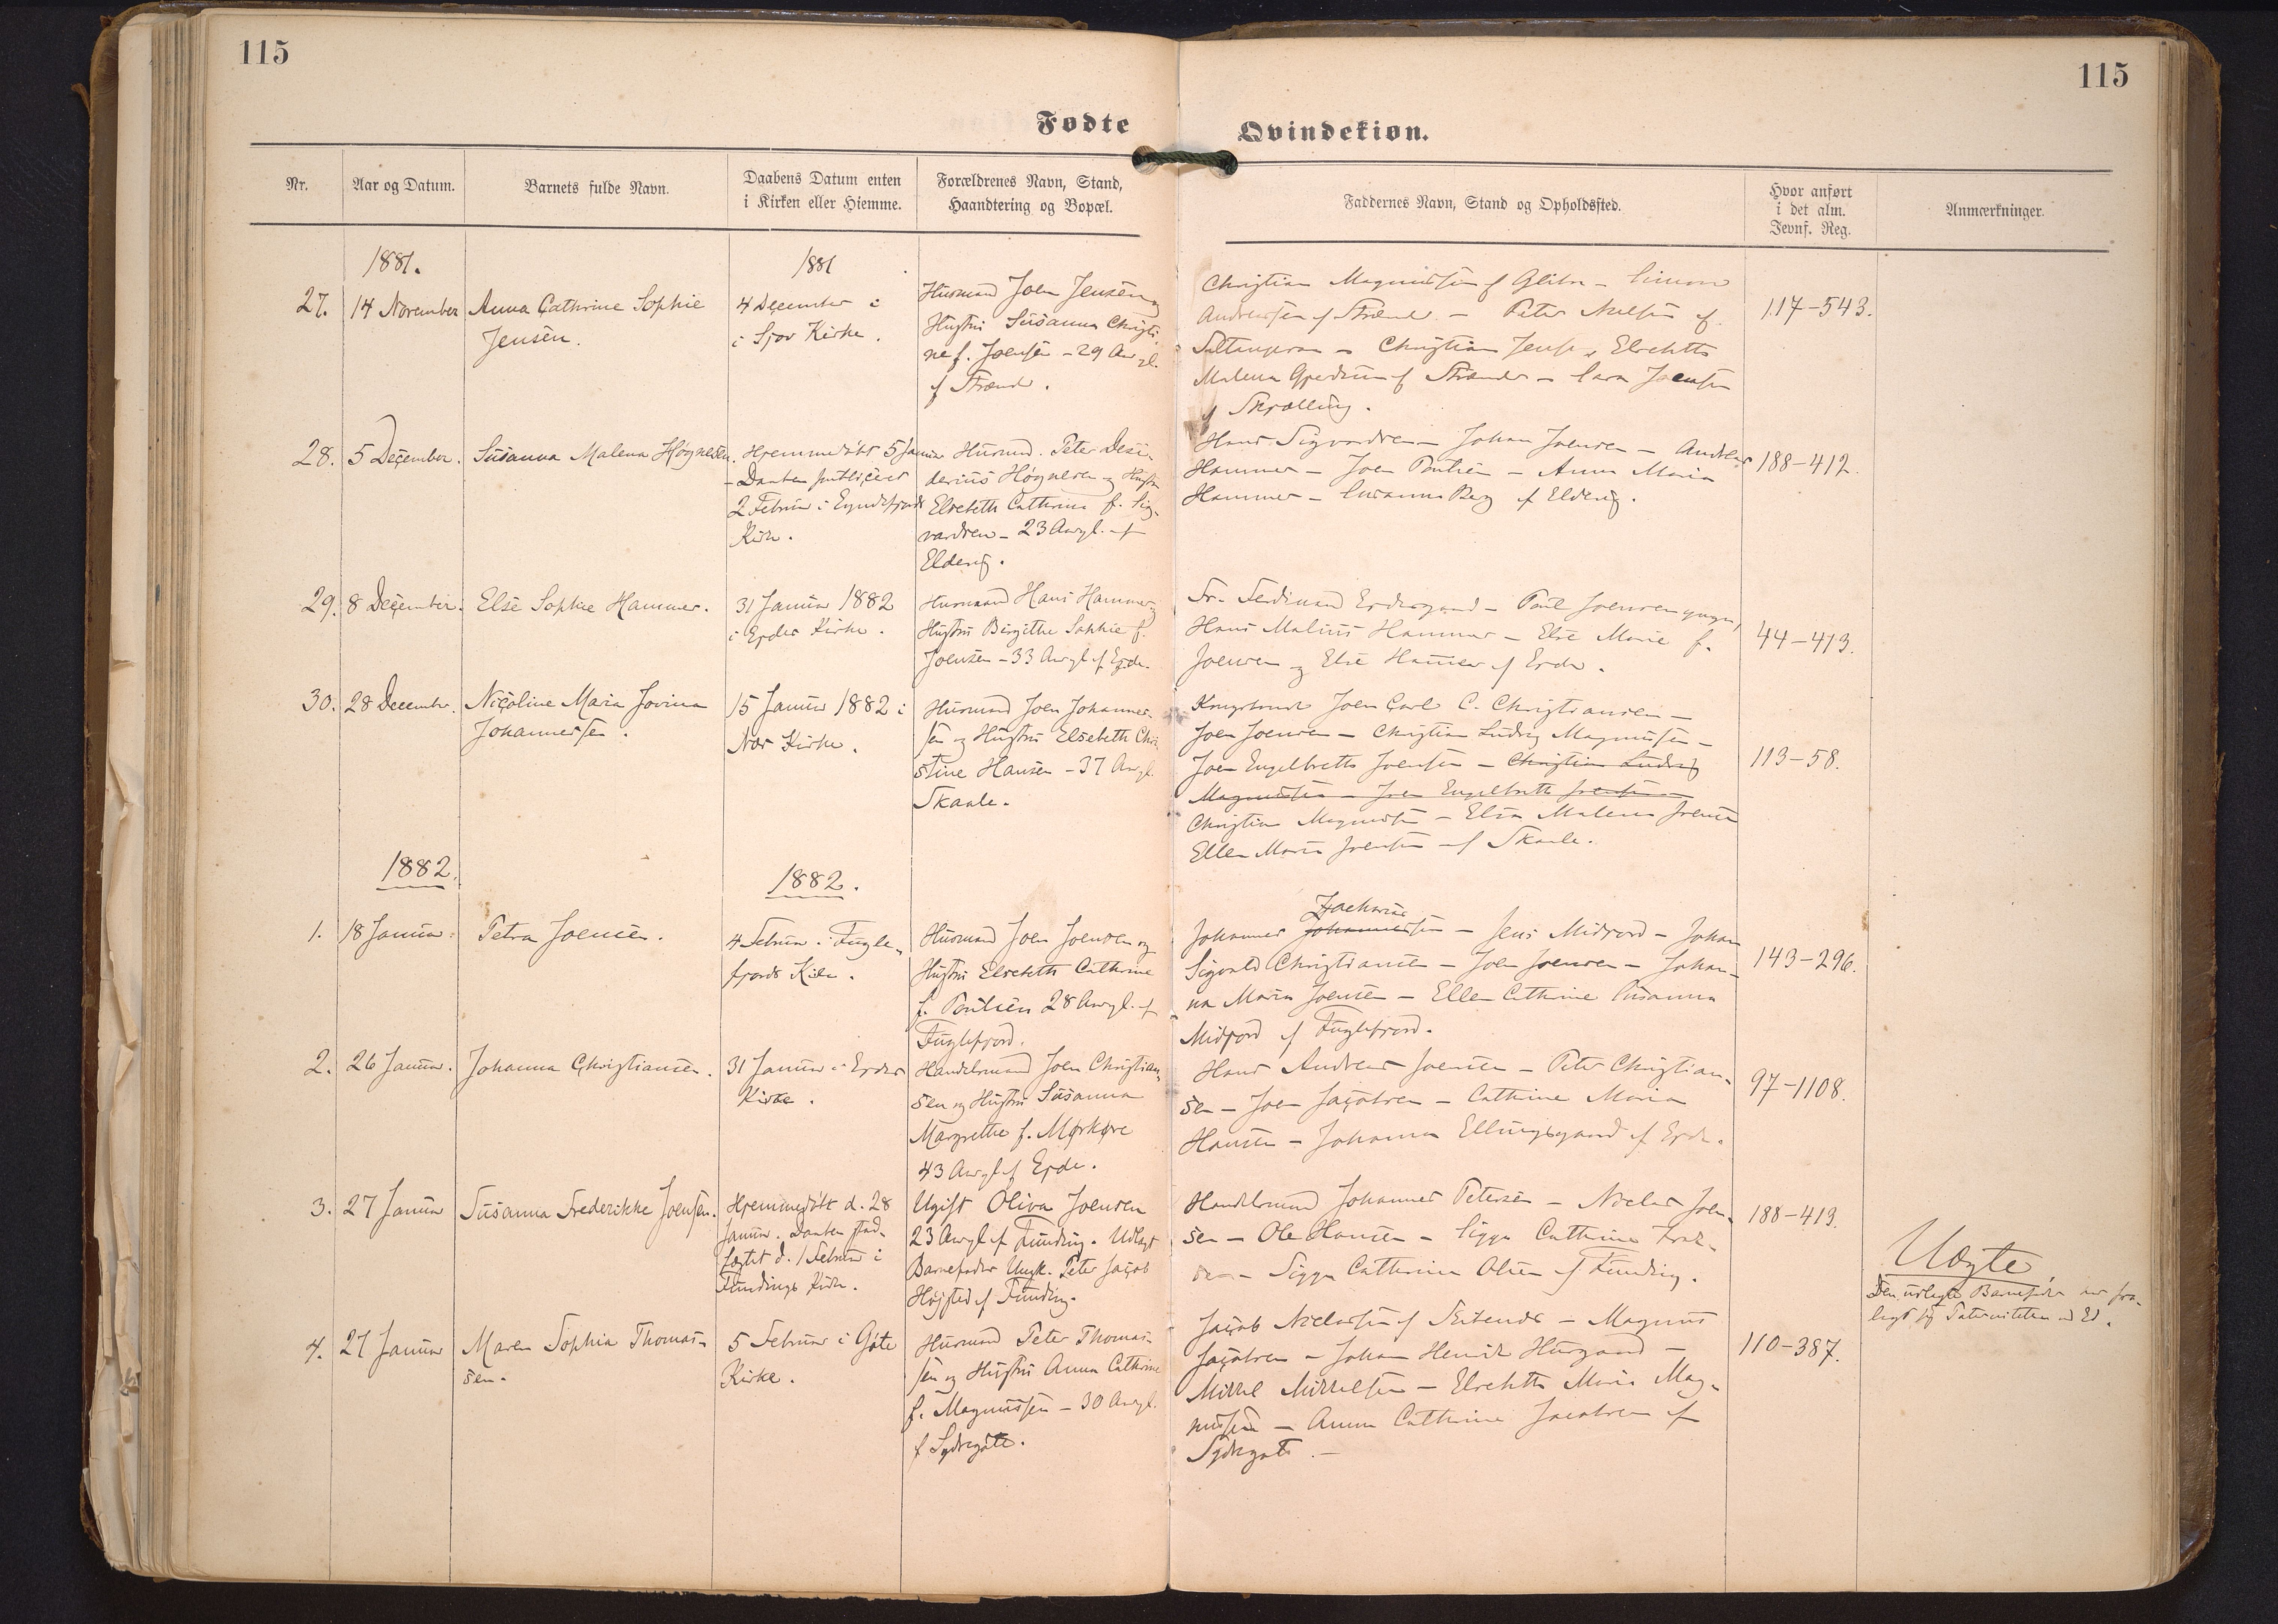 115
115
Fødte
Qvindekiøn.
Nr.
Aar og Datum.
Barnets fulde Navn.
Daabens Datum enten
i Kirken eller Hiemme.
Forældrenes Navn, Stand,
Haandtering og Bopæl.
Faddernes Navn, Stand og Opholdssted.
Hvor anført
i det alm.
Jevnf. Reg.
Anmærkninger.
1881.
1881
27.
14 November
Anna Cathrine Sophie
Jensen.
4 December i
i Sjov Kirke.
Husmand Joen Jensen og
Hustru Susanna Christi-
ne f. Joensen - 29 Aar gl.
f Strænd.
Christian Magnussen f Glibre - Simon
Andreassen f Strænd - Peter Nielsen f
- Christian Elsebeth
Malena f Strænder - Sara Joensen
f Skjælling.
117-543.
28.
5 December.
Susanna Malena Høgnesen.
Hjemmedøbt 5 Januar
- Daaben publiceret
2 Februar i Eyndefjords
Kirke.
Husmd. Peter Desi-
derius Høgnesen og Hustru
Elsebeth Cathrine f. Sig-
vardsen - 23 Aar gl. af
Eldevig.
Hans Sigvardsen - Johan Joensen - Andreas
Hammer - Joen Poulsen - Anna Maria
Hammer - Susanna Berg af Eldevig.
188-412.
29.
8 December.
Else Sophie Hammer.
31 Januar 1882
i Ejde Kirke.
Husmand Hans Hammer og
Hustru Birgithe Sophie f.
Joensen - 33 Aar gl. f Ejde.
Fr. Ferdinand - Poul Joensen yngre,
Hans Malius Hammer - Else Marie f.
Joensen og Else Hammer af Ejde.
44-413.
30.
28 December.
Nicoline Maria Jovina
Johannessen.
15 Januar 1882 i
Næs Kirke.
Husmand Joen Johannes-
sen og Hustru Elsebeth Chri-
stine Hansen - 37 Aar gl.
Skaale.
Kongsbonde Joen Carl C. Christiansen -
Joen Joensen - Christian Ludvig Magnussen -
Joen Engelbreth Joensen - Christian Ludvig
Magnussen - Joen Engelbreth Joensen -
Christian Magnussen - Elsa Malena Joensen
Ellen Maria Joensen af Skaale.
113-58.
1882.
1882.
1.
18 Januar.
Petra Joensen.
4 Februar i Fugle-
fjords Kirke.
Husmand Joen Joensen og
Hustru Elsebeth Cathrine
f. Poulsen 28 Aar gl. af
Fuglefjord.
Zacharias
Johannes Johannessen - Jens Midfjord - Johan
Sigvald Christiansen - Joen Joensen - Johan-
na Maria Joensen - Ellen Cathrine Susanna
Midfjord af Fuglefjord.
143-296.
2.
26 Januar.
Johanna Christiansen.
31 Januar i Ejdes
Kirke.
Handelsmand Joen Christian-
sen og Hustru Susanna
Margrethe f. Mørkøre
43 Aar gl. f Ejde.
Hans Andreas Joensen - Peter Christian-
sen - Joen Jacobsen - Cathrine Maria
Hansen - Johanna Ellingsgaard af Ejde.
97-1108.
3.
27 Januar
Susanna Frederikke Joensen.
Hjemmedøbt d. 28
Januar. Daaben stad-
fæstet d. 1 Februar i
Fundings Kirke.
Ugift Oliva Joensen
23 Aar gl. af Funding. Udlagt
Barnefader Ungk. Peter Jacob
Højsted af Funding.
Handelsmand Johannes Petersen - Niclas Joen-
sen - Ole Hansen - Sigga Cathrine
- Sigga Cathrine Olsen af Funding.
188-413.
Uægte
Den udlagte Barnefader har fra-
lagt sig Paterniteten ved Ed.
4.
27 Januar
Maren Sophia Thomas-
sen.
5 Februar i Gøte
Kirke.
Husmand Peter Thomas-
sen og Hustru Anna Cathrine
f. Magnussen - 30 Aar gl.
f Sydregøte.
Jacob Niclassen af - Magnus
Jacobsen - Johan Henrik Husgaard -
Mikkel Mikkelsen - Elsebeth Maria Mag-
nussen - Anna Cathrine Jacobsen af
Sydregøte. -
110-387.